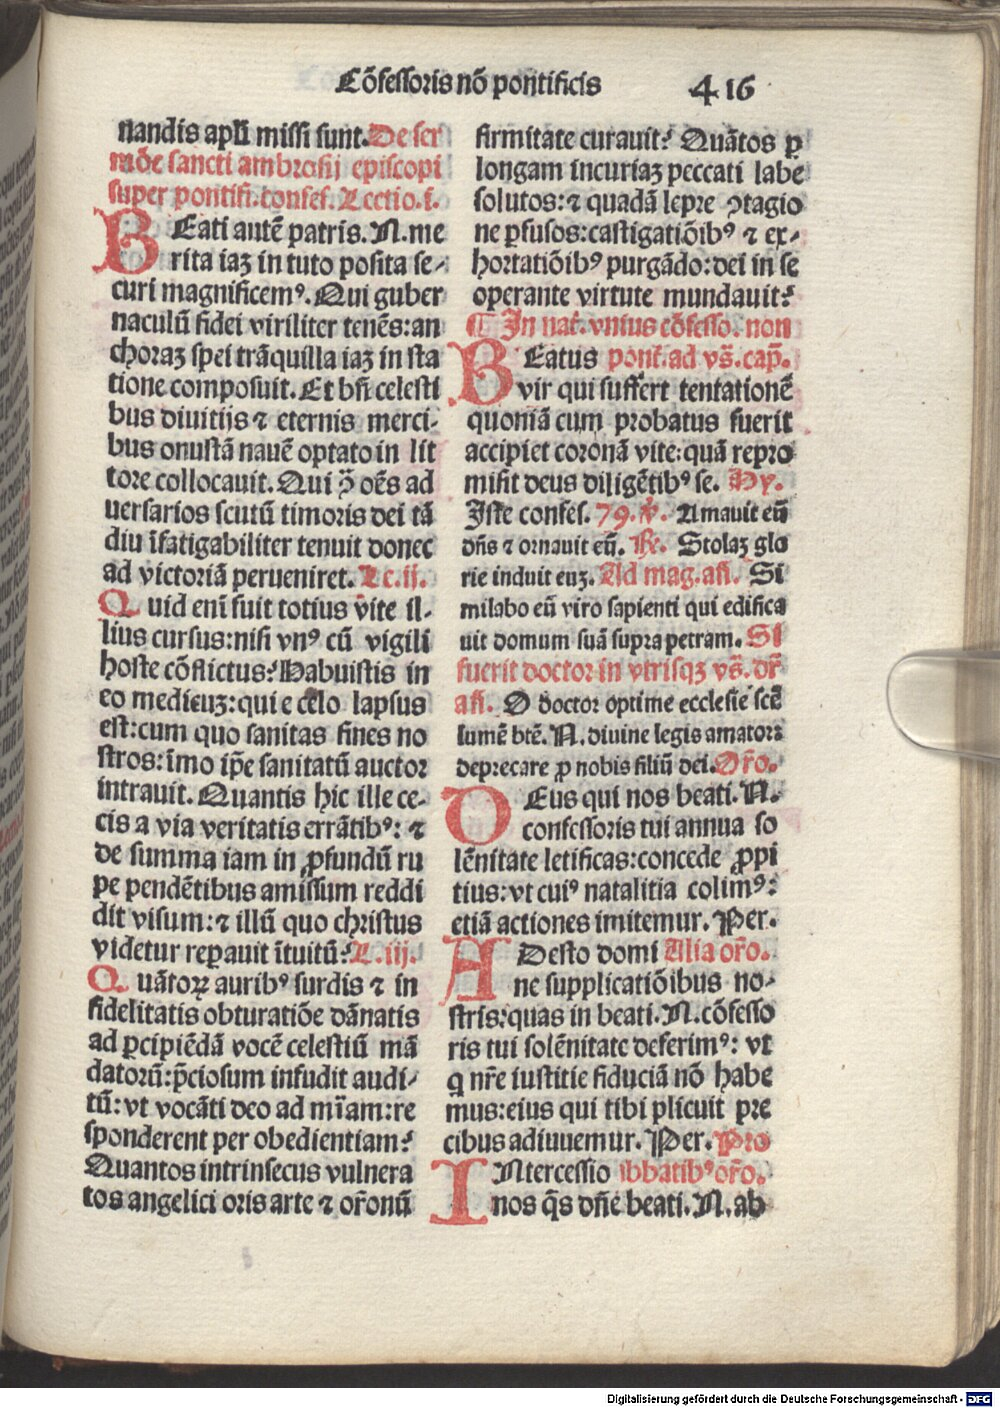 Cõfessoris nõ pontificis 416
nandis apľi missi sunt. De ser
mõe sancti ambrosij episcopi
super pontifi. confes. Lectio. i.
BEati autẽ patris. N. me
rita iaʒ in tuto posita se-
curi magnificemꝰ. Qui guber
naculũ fidei viriliter tenẽs: an
choraʒ spei trãquilla iaʒ in sta
tione composuit. Et bñ celesti
bus diuitijs ⁊ eternis merci-
bus onustã nauẽ optato in lit
tore collocauit. Qui ꝯ̃ oẽs ad
uersarios scutũ timoris dei tã
diu ĩfatigabiliter tenuit donec
ad victoriã perueniret. Lc. ij.
Quid enĩ fuit totius vite il-
lius cursus: nisi vnꝰ cũ vigili
hoste cõflictus? Habuistis in
eo medicuʒ: qui e celo lapsus
est: cum quo sanitas fines no
stros: ĩmo ip̃e sanitatũ auctor
intrauit. Quantis hic ille ce-
cis a via veritatis errãtibꝰ: ⁊
de summa iam in ꝓfundũ ru
pe pendẽtibus amissum reddi
dit visum: ⁊ illũ quo christus
videtur reꝑauit ĩtuitũ? L. iij.
Quãtoꝝ auribꝰ surdis ⁊ in
fidelitatis obturatiõe dãnatis
ad ꝑcipiẽdã vocẽ celestiũ mã
datorũ: p̃ciosum infudit audi-
tũ: vt vocãti deo ad mĩam: re
sponderent per obedientiam?
Quantos intrinsecus vulnera
tos angelici oris arte ⁊ or̃onũ
firmitate curauit? Quãtos ꝑ
longam incuriaʒ peccati labe
solutos: ⁊ quadã lepre ꝯtagio
ne ꝑfusos: castigatiõibꝰ ⁊ ex-
hortatiõibꝰ purgãdo: dei in se
operante virtute mundauit?
¶ In nat̃. vnius cõfesso. non
BEatus pont̃. ad vs̃. cap̃.
vir qui suffert tentationẽ
quoniã cum probatus fuerit
accipiet coronã vite: quã repro
misit deus diligẽtibꝰ se. Hy.
Iste confes. 79. ꝟ. Amauit eũ
dñs ⁊ ornauit eũ. ℟. Stolaʒ glo
rie induit euʒ. Ad mag. añ. Si
milabo eũ viro sapienti qui edifica
uit domum suã supra petram. Si
fuerit doctor in vtrisqʒ vs̃. dr̃
añ. O doctor optime ecclesie scẽ
lumẽ btẽ. N. diuine legis amator:
deprecare ꝓ nobis filiũ dei. Or̃o.
DEus qui nos beati. N.
confessoris tui annua so
lẽnitate letificas: concede ꝓpi
tius: vt cuiꝰ natalitia colimꝰ:
etiã actiones imitemur. Per.
ADesto domi Alia or̃o.
ne supplicatiõibus no-
stris: quas in beati. N. cõfesso
ris tui solẽnitate deferimꝰ: vt
q nr̃e iustitie fiduciã nõ habe
mus: eius qui tibi placuit pre
cibus adiuuemur. Per. Pro
INtercessio abbatibꝰ or̃o.
nos q̃s dñe beati. N. ab
Digitalisierung gefördert durch die Deutsche Forschungsgemeinschaft - DFG